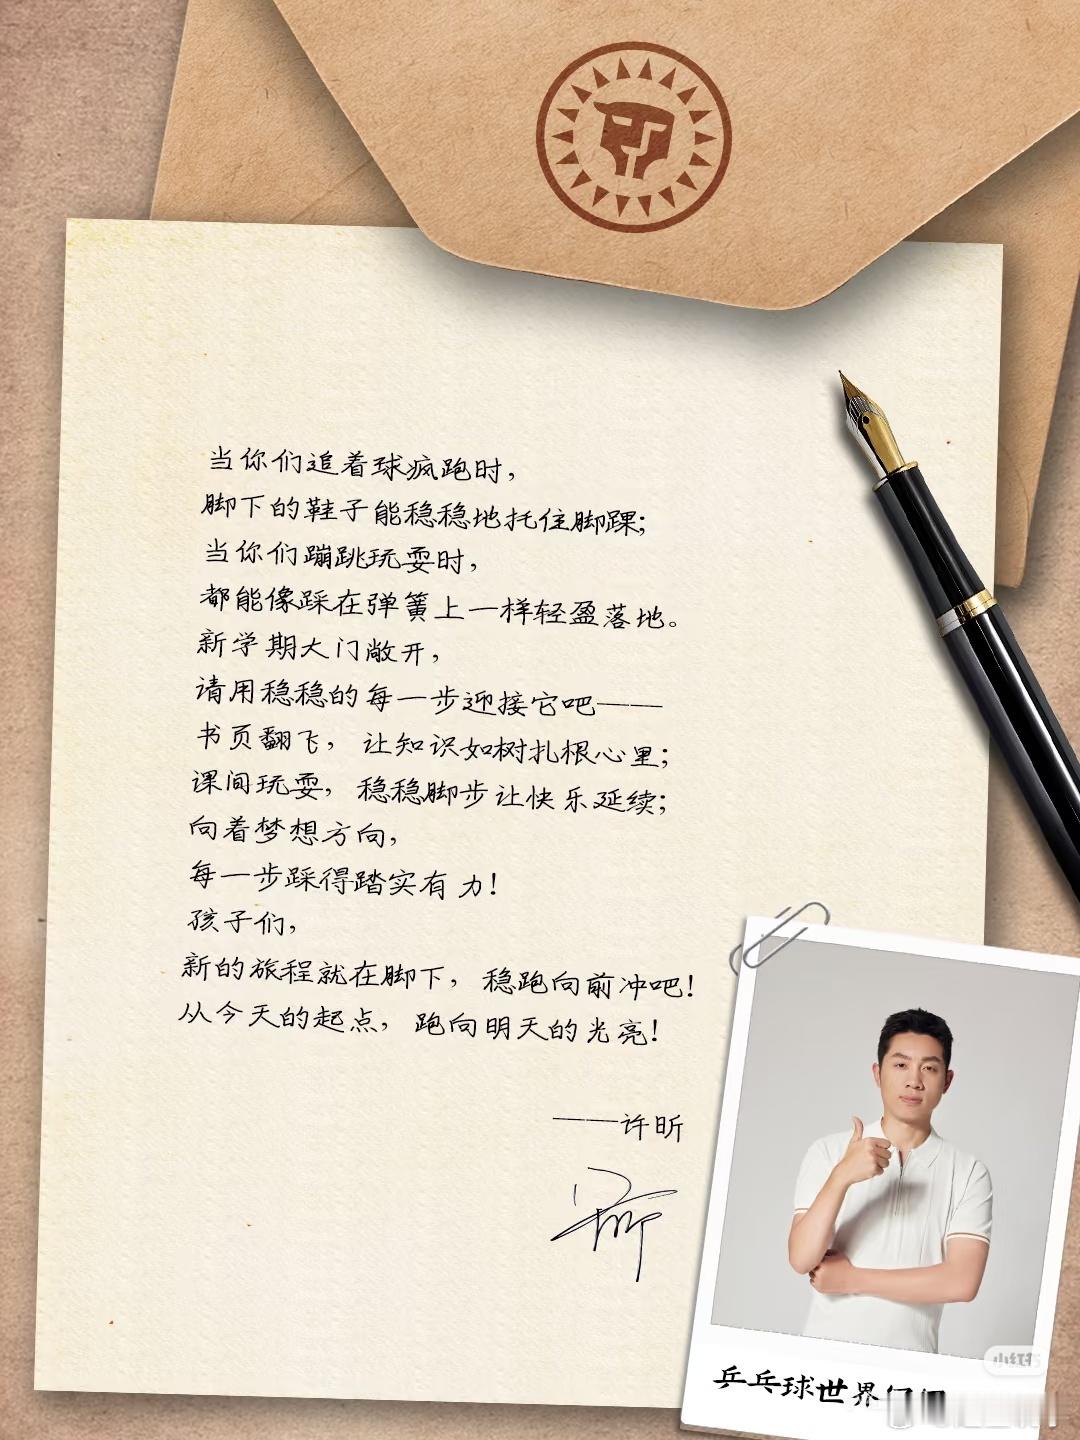 当你们追着球疯跑时，
脚下的鞋子能稳稳地托住脚踝；
当你们蹦跳玩耍时，
都能像踩在弹簧上一样轻盈落地。
新学期大门敞开，
请用稳稳的每一步迎接它吧——
书页翻飞，让知识如树扎根心里；
课间玩耍，稳稳脚步让快乐延续；
向着梦想方向，
每一步踩得踏实有力！
孩子们，
新的旅程就在脚下，稳跑向前冲吧！
从今天的起点，跑向明天的光亮！
——许昕
许昕
小红书
乒乓球世界冠